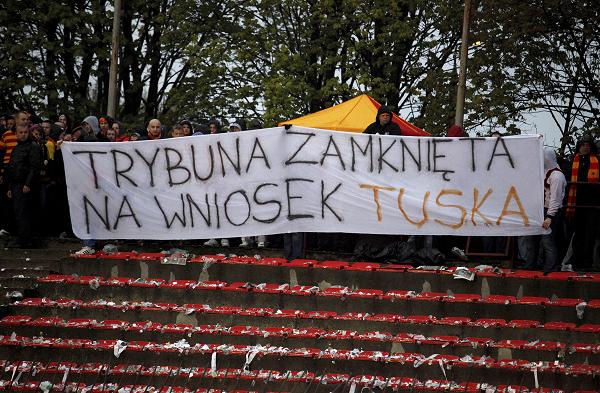 TRYBUNA ZAMKNIĘTA
NA WNIOSEK TUSKA